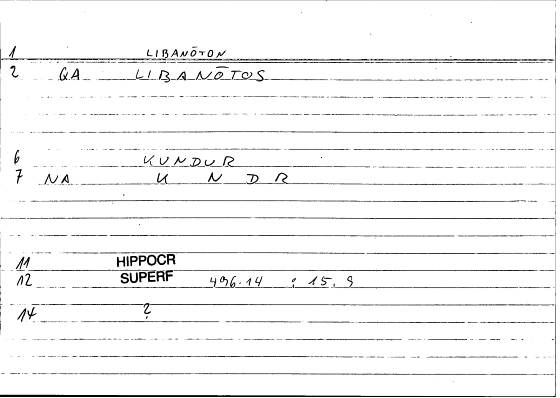 1 LIBANŌTON
2 QA LIBANŌTOS
6 KUNDUR
7 NA K N D R
11 HIPPOCR
12 SUPERF 496.14 : 15.9
14 ?